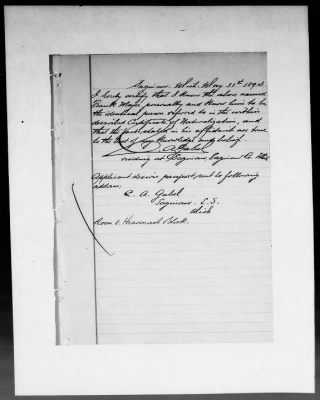 Saginaw, Mich. May 31st 1894
I hereby certify that I know the above named
Frank Mayer personally and know him to be
the identical person referred to in the within
described Certificate of Naturalization, and
that the facts stated in his affidavit are true
to the best of my knowledge and belief.
C. A. Gubel
residing at Saginaw, Saginaw Co. Mich
Applicant desires passport sent to following
address,
C. A. Gubel
Saginaw, E.S.
Mich
Room Block.